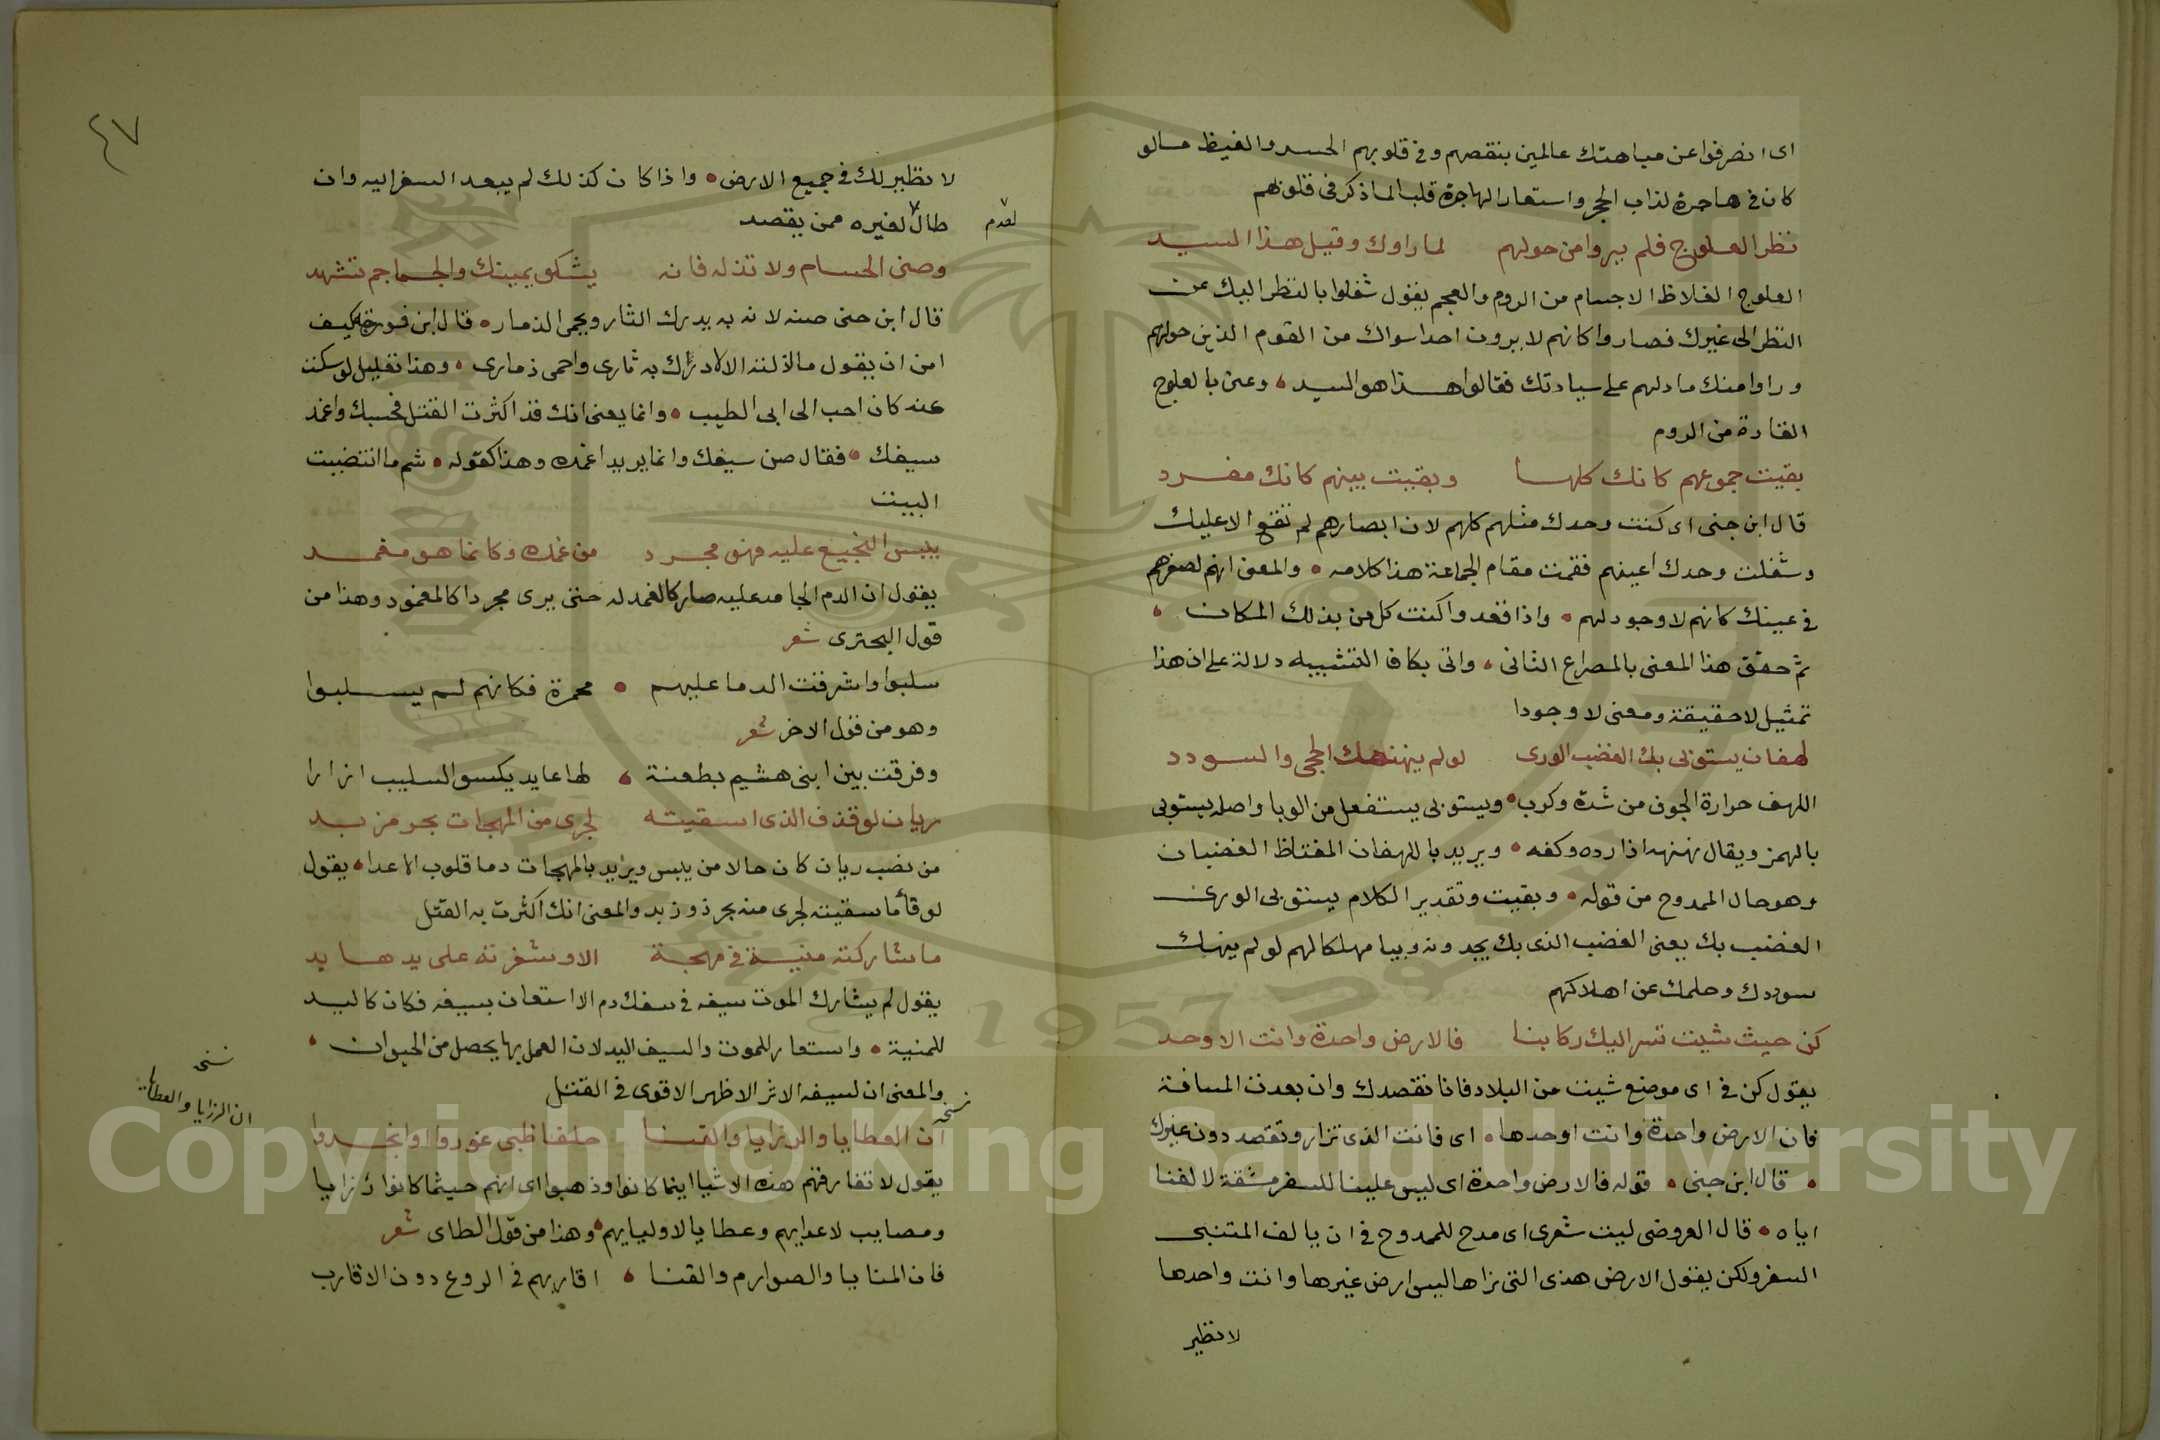 اى انصرفوا عن مباهتك عالمين بنقصهم وفى قلوبهم الحسد والغيظ مالو
كان فى هاجرة لذاب الحجر واستعار الهاجرة قلبا لما ذكر فى قلوبهم
نظر العلوج فلم يروا من حولهم لما راوك وقيل هذا السيد
العلوج الغلاظ الاجسام من الروم والعجم يقول شغلوا بالنظر اليك عن
النظر الى غيرك فصاروا كانهم لا يرون احدا سواك من القوم الذين حولهم
وراوا منك ما دلهم على سيادتك فقالوا هذا هو السيد وعنى بالعلوج
القادة من الروم
بقيت جموعهم كانك كلها وبقيت بينهم كانك مفرد
قال ابن جنى اى كنت وحدك مثلهم كلهم لان ابصارهم لم تقع الا عليك
وشغلت وحدك اعينهم فقمت مقام الجماعة هذا كلامه والمعنى انهم لصغرهم
فى عينك كانهم لا وجود لهم واذا فقدوا كنت كل من بذلك المكان
ثم حقق هذا المعنى بالمصراع الثانى واتى بكاف التشبيه دلالة على ان هذا
تمثيل لا حقيقة ومعنى لا وجودا
لهفان يستوبى بك الغضب الورى لو لم ينهنهك الحجى والسودد
اللهف حرارة الجوف من شدة وكرب ويستوبى يستفعل من الوبا واصله يستوبى
بالهمز ويقال نهنهه اذا رده وكفه ويريد باللهفان المغتاظ الغضبان
وهو حال الممدوح من قوله وبقيت وتقدير الكلام يستوبى الورى
الغضب بك يعنى الغضب الذى بك يجدونه وبيا مهلكا لهم لو لم ينهك
سوددك وحلمك عن اهلاكهم
كن حيث شيت تسر اليك ركابنا فالارض واحدة وانت الاوحد
يقول كن فى اى موضع شيت من البلاد فانا نقصدك وان بعدت المسافة
فان الارض واحدة وانت اوحدها اى فانت الذى تزار وتقصد دون غيرك
قال ابن جنى قوله فالارض واحدة اى ليس علينا للسفر مشقة لالفنا
اياه قال العروضى ليت شعرى اى مدح للممدوح فى ان يالف المتنبى
السفر ولكن يقول الارض هذى التى نراها ليس ارض غيرها وانت واحدها
لا نظير
٤٧
لا نظير لك فى جميع الارض واذا كان كذلك لم يبعد السفر اليه وان
طال لغيره ممن يقصد
لعدم
وصن الحسام ولا تذله فانه يشكو يمينك والجماجم تشهد
قال ابن جنى صنه لانه به يدرك الثار ويحمى الذمار قال ابن فورجه كيف
امن ان يقول ما اذلته الا لادراك به ثارى واحمى ذمارى وهذا تعليل لو سكت
عنه كان احب الى ابى الطيب وانما يعنى انك قد اكثرت القتل فحسبك واغمد
سيفك فقال صن سيفك وانما يريد اغمده وهذا كقوله شم ما انتضيت
البيت
يبس النجيع عليه فهو مجرد من غمده وكانما هو مغمد
يقول ان الدم الجامد عليه صار كالغمد له حتى يرى مجردا كالمغمود وهذا من
قول البحترى شعر
سلبوا واشرقت الدما عليهم محمرة فكانهم لم يسلبوا
وهو من قول الاخر شعر
وفرقت بين ابنى هشيم بطعنة لها عايد يكسو السليب ازارا
ريان لو قذف الذى اسقيته لجرى من المهجات بحر مزبد
من نصب ريان كان حالا من يبس ويريد بالمهجات دما قلوب الاعدا يقول
لو قا ما سقيته لجرى منه بحر ذو زبد والمعنى انك اكثرت به القتل
ما شاركته منية فى مهجة الا وشفرته على يدها يد
يقول لم يشارك الموت سيفه فى سفك دم الا استعان بسيفه فكان كاليد
للمنية واستعار للموت والسيف اليد لان العمل بها يحصل من الحيوان
والمعنى ان لسيفه الاثر الاظهر الاقوى فى القتل
نسخه
ان العطايا والرزايا والقنا حلفا طيى غوروا او انجدوا
نسخه
ان الرزايا والعطايا
يقول لا تفارقهم هذه الاشيا اينما كانوا وذهبوا اى انهم حيثما كانوا رزايا
ومصايب لاعدايهم وعطايا لاوليايهم وهذا من قول الطاى شعر
فان المنايا والصوارم والقنا اقاربهم فى الروع دون الاقارب
Copyright © King Saud University
1957